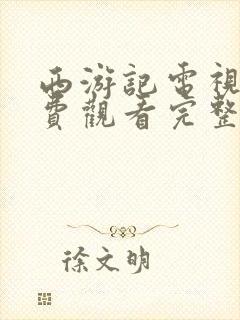 西游記電視
費觀看完整
徐文明